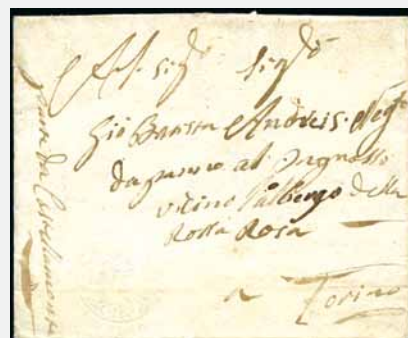 Al Sig.r Sig.r
Gio Batista Andreis Neg.te
da panno al Ingrosso
vicino l'albergo della
Rossa Rosa
a Torino